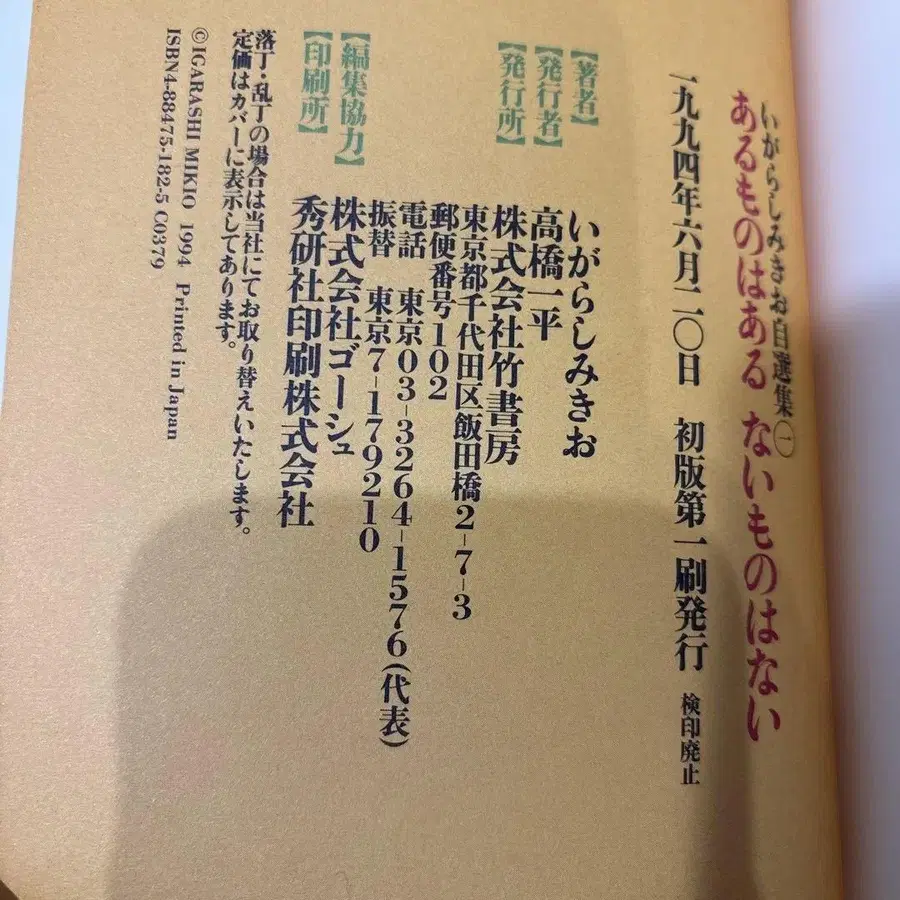 いがらしみきお自選集㊀
あるものはある ないものはない
一九九四年六月二〇日 初版第一刷発行 検印廃止
【著者】 いがらしみきお
【発行者】 高橋一平
【発行所】 株式会社竹書房
東京都千代田区飯田橋2-7-3
郵便番号102
電話 東京03-3264-1576(代表)
振替 東京7-179210
【編集協力】 株式会社ゴーシュ
【印刷所】 秀研社印刷株式会社
落丁・乱丁の場合は当社にてお取り替えいたします。
定価はカバーに表示してあります。
©IGARASHI MIKIO 1994 Printed in Japan
ISBN4-88475-182-5 C0379